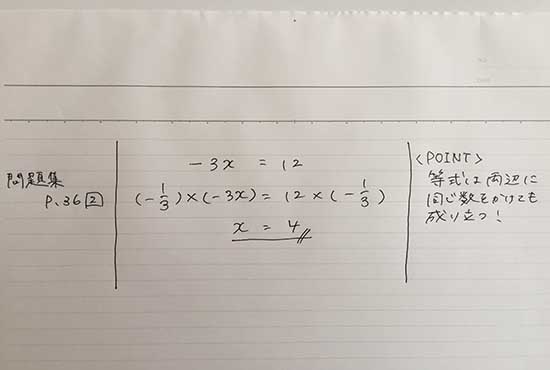 問題集
P.36 2
-3x = 12
(-1/3)×(-3x) = 12×(-1/3)
x = 4
<POINT>
等式は両辺に
同じ数をかけても
成り立つ!